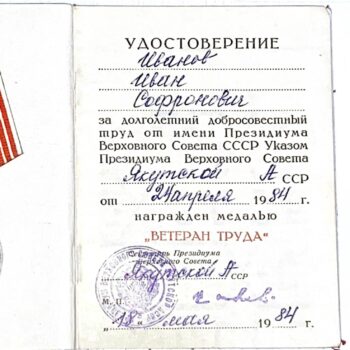 УДОСТОВЕРЕНИЕ
Иванов
Иван
Софронович
за долголетний добросовестный
труд от имени Президиума
Верховного Совета СССР Указом
Президиума Верховного Совета
Якутской А ССР
от 24 апреля 1984 г.
награжден медалью
„ВЕТЕРАН ТРУДА"
Секретарь Президиума
Верховного Совета
Якутской А ССР
М. П.
"18" мая 1984 г.